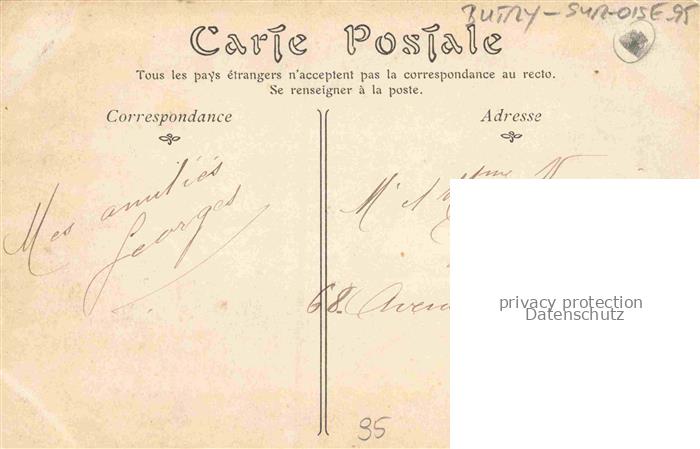 BUTRY-SUR-OISE 95
Carte Postale
Tous les pays étrangers n'acceptent pas la correspondance au recto.
Se renseigner à la poste.
Correspondance
Adresse
Mes amitiés
Georges
Mr et Mme
68. Aven
privacy protection
Datenschutz
95